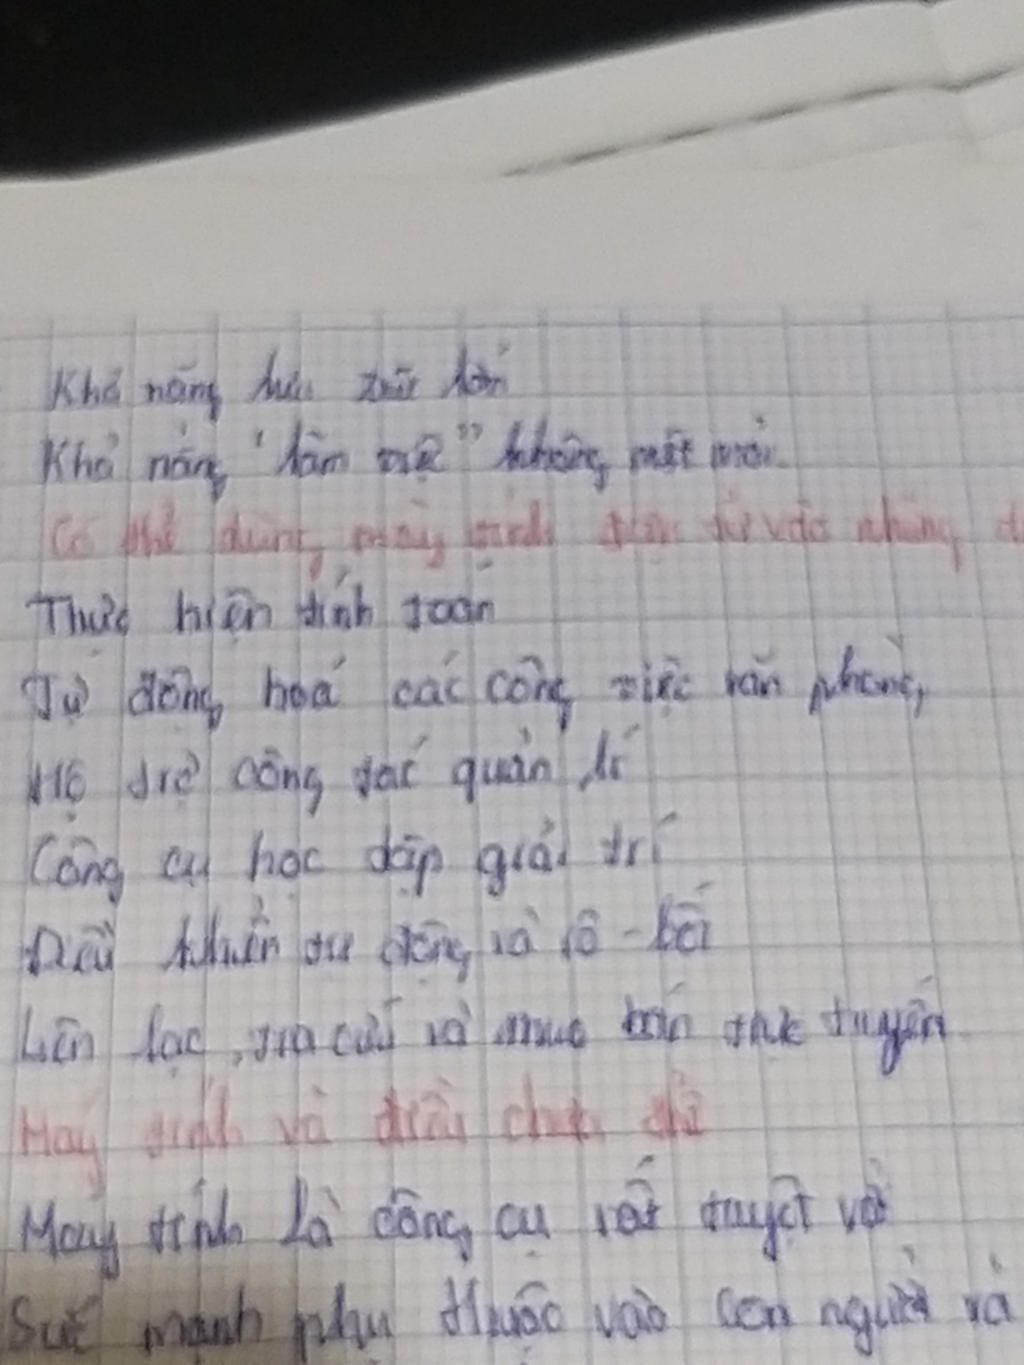 Khả năng lưu trữ lớn
Khả năng "làm việ" không mệt mỏi
Có thể dùng máy tính điện tử vào những
Thực hiện tính toán
Tự động hoá các công việc văn phòng
Hỗ trợ công tác quản lí
Công cụ học tập giải trí
Điều khiển tự động và rô-bốt
Liên lạc, tra cứu và mua bán trực tuyến
Máy tính và điều chưa thể
Máy tính là công cụ rất tuyệt vời
Sức mạnh phụ thuộc vào con người và